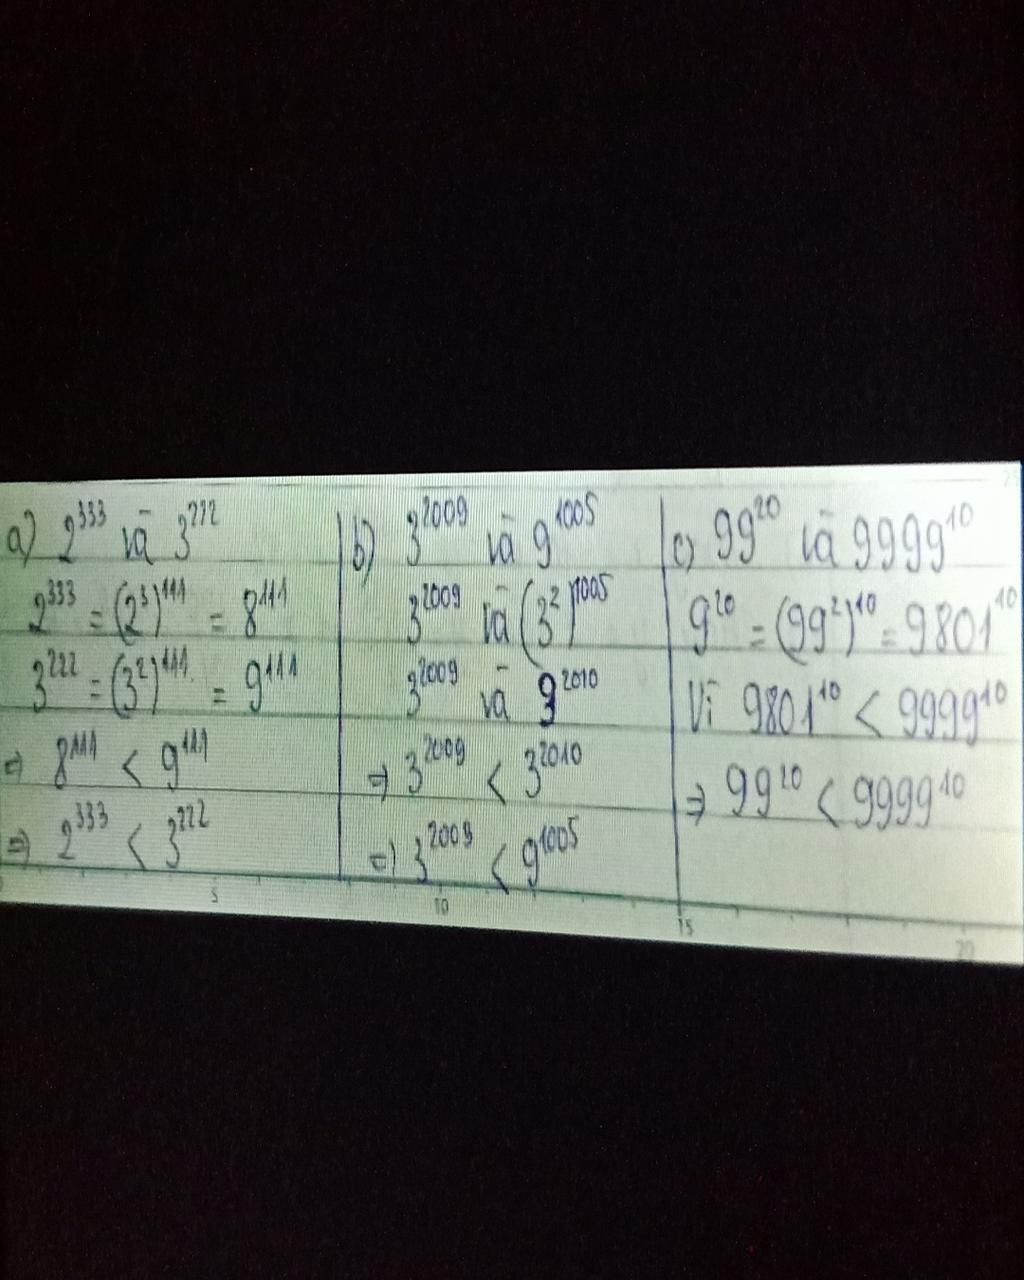 a) 2³³³ và 3²²²
2³³³ = (2³)¹¹¹ = 8¹¹¹
3²²² = (3²)¹¹¹ = 9¹¹¹
⇒ 8¹¹¹ < 9¹¹¹
⇒ 2³³³ < 3²²²
b) 3²⁰⁰⁹ và 9¹⁰⁰⁵
3²⁰⁰⁹ và (3²)¹⁰⁰⁵
3²⁰⁰⁹ và 3²⁰¹⁰
⇒ 3²⁰⁰⁹ < 3²⁰¹⁰
⇒ 3²⁰⁰⁹ < 9¹⁰⁰⁵
c) 99²⁰ và 9999¹⁰
9²⁰ = (99²)¹⁰ = 9801¹⁰
Vì 9801¹⁰ < 9999¹⁰
⇒ 99²⁰ < 9999¹⁰
5 10 15 20